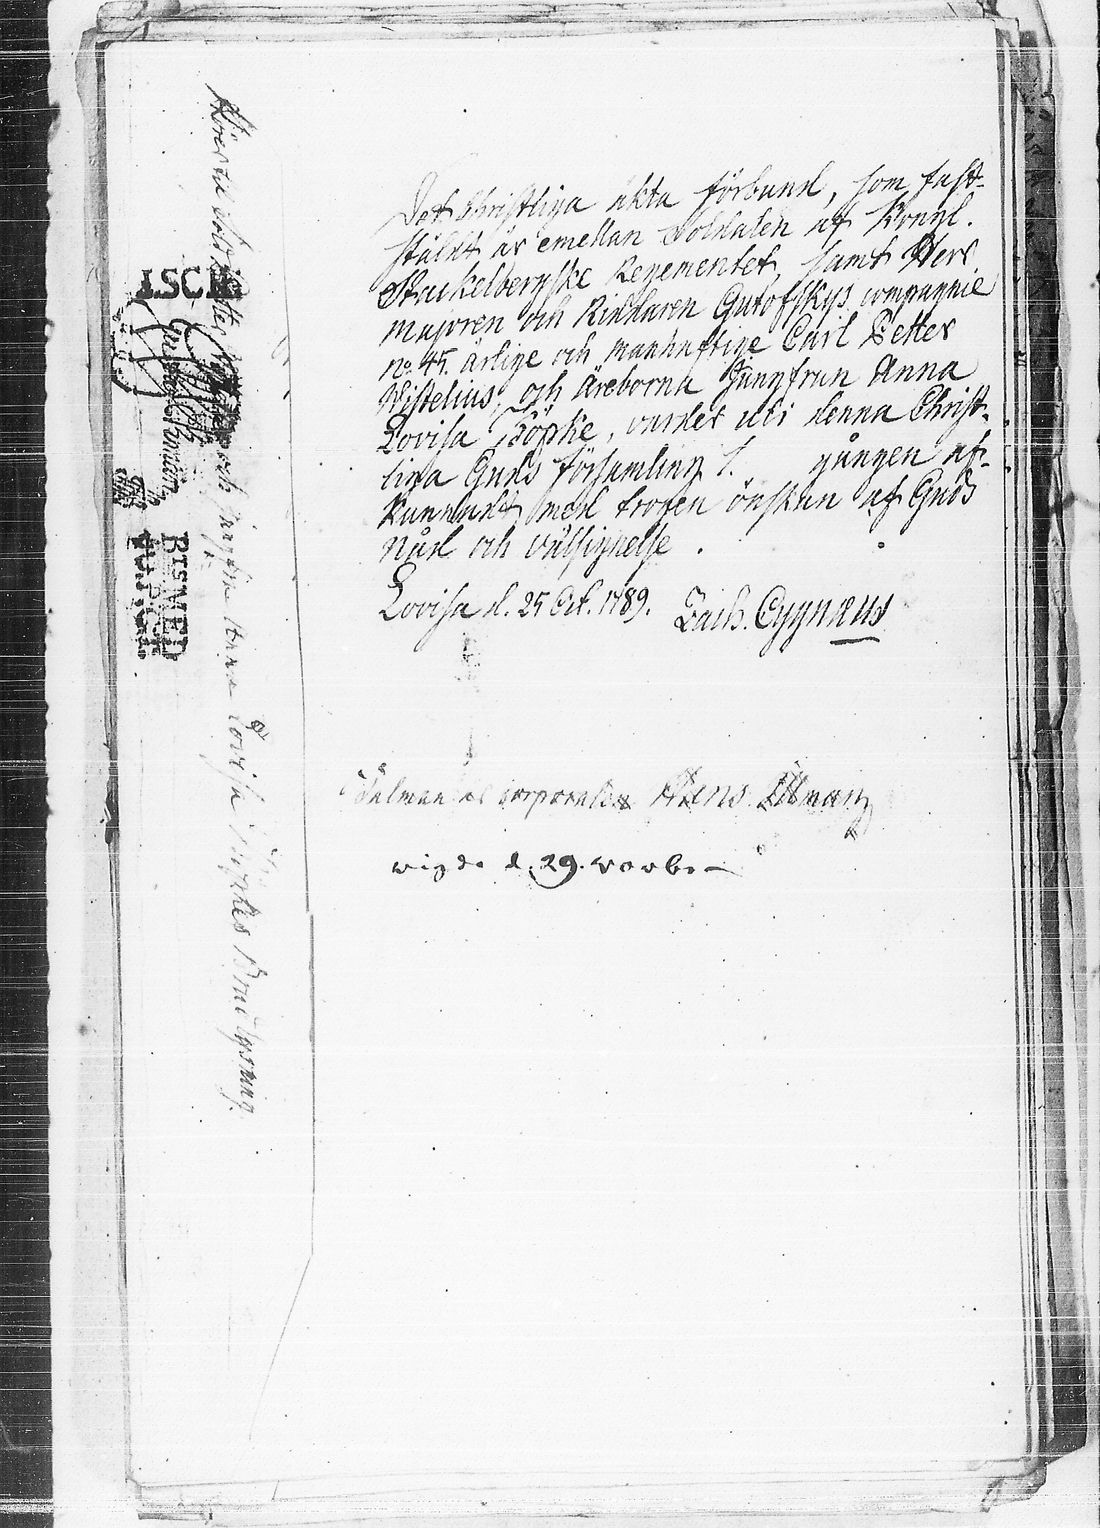 Det Christliga äkta förbund, som fast-
stäldt är emellan Soldaten af Kongl.
Stackelbergske Regementet, samt Herr
majoren och Riddaren Gutofskys compagnie
no. 45. ärlige och manhaftige Carl Petter
Wistelius, och Äreborna Jungfrun Anna
Lovisa Köpke, varder uti denna Christ-
liga Guds församling 1. gången af-
kunnadt med trogen önskan af Guds
nåd och välsignelse.
Lovisa d. 25 Oct. 1789. Zach. Cygnæus
corporalen Ullman
wigde d. 29. novbr
och Jungfru Anna Lovisa Köpkes Brudlysning